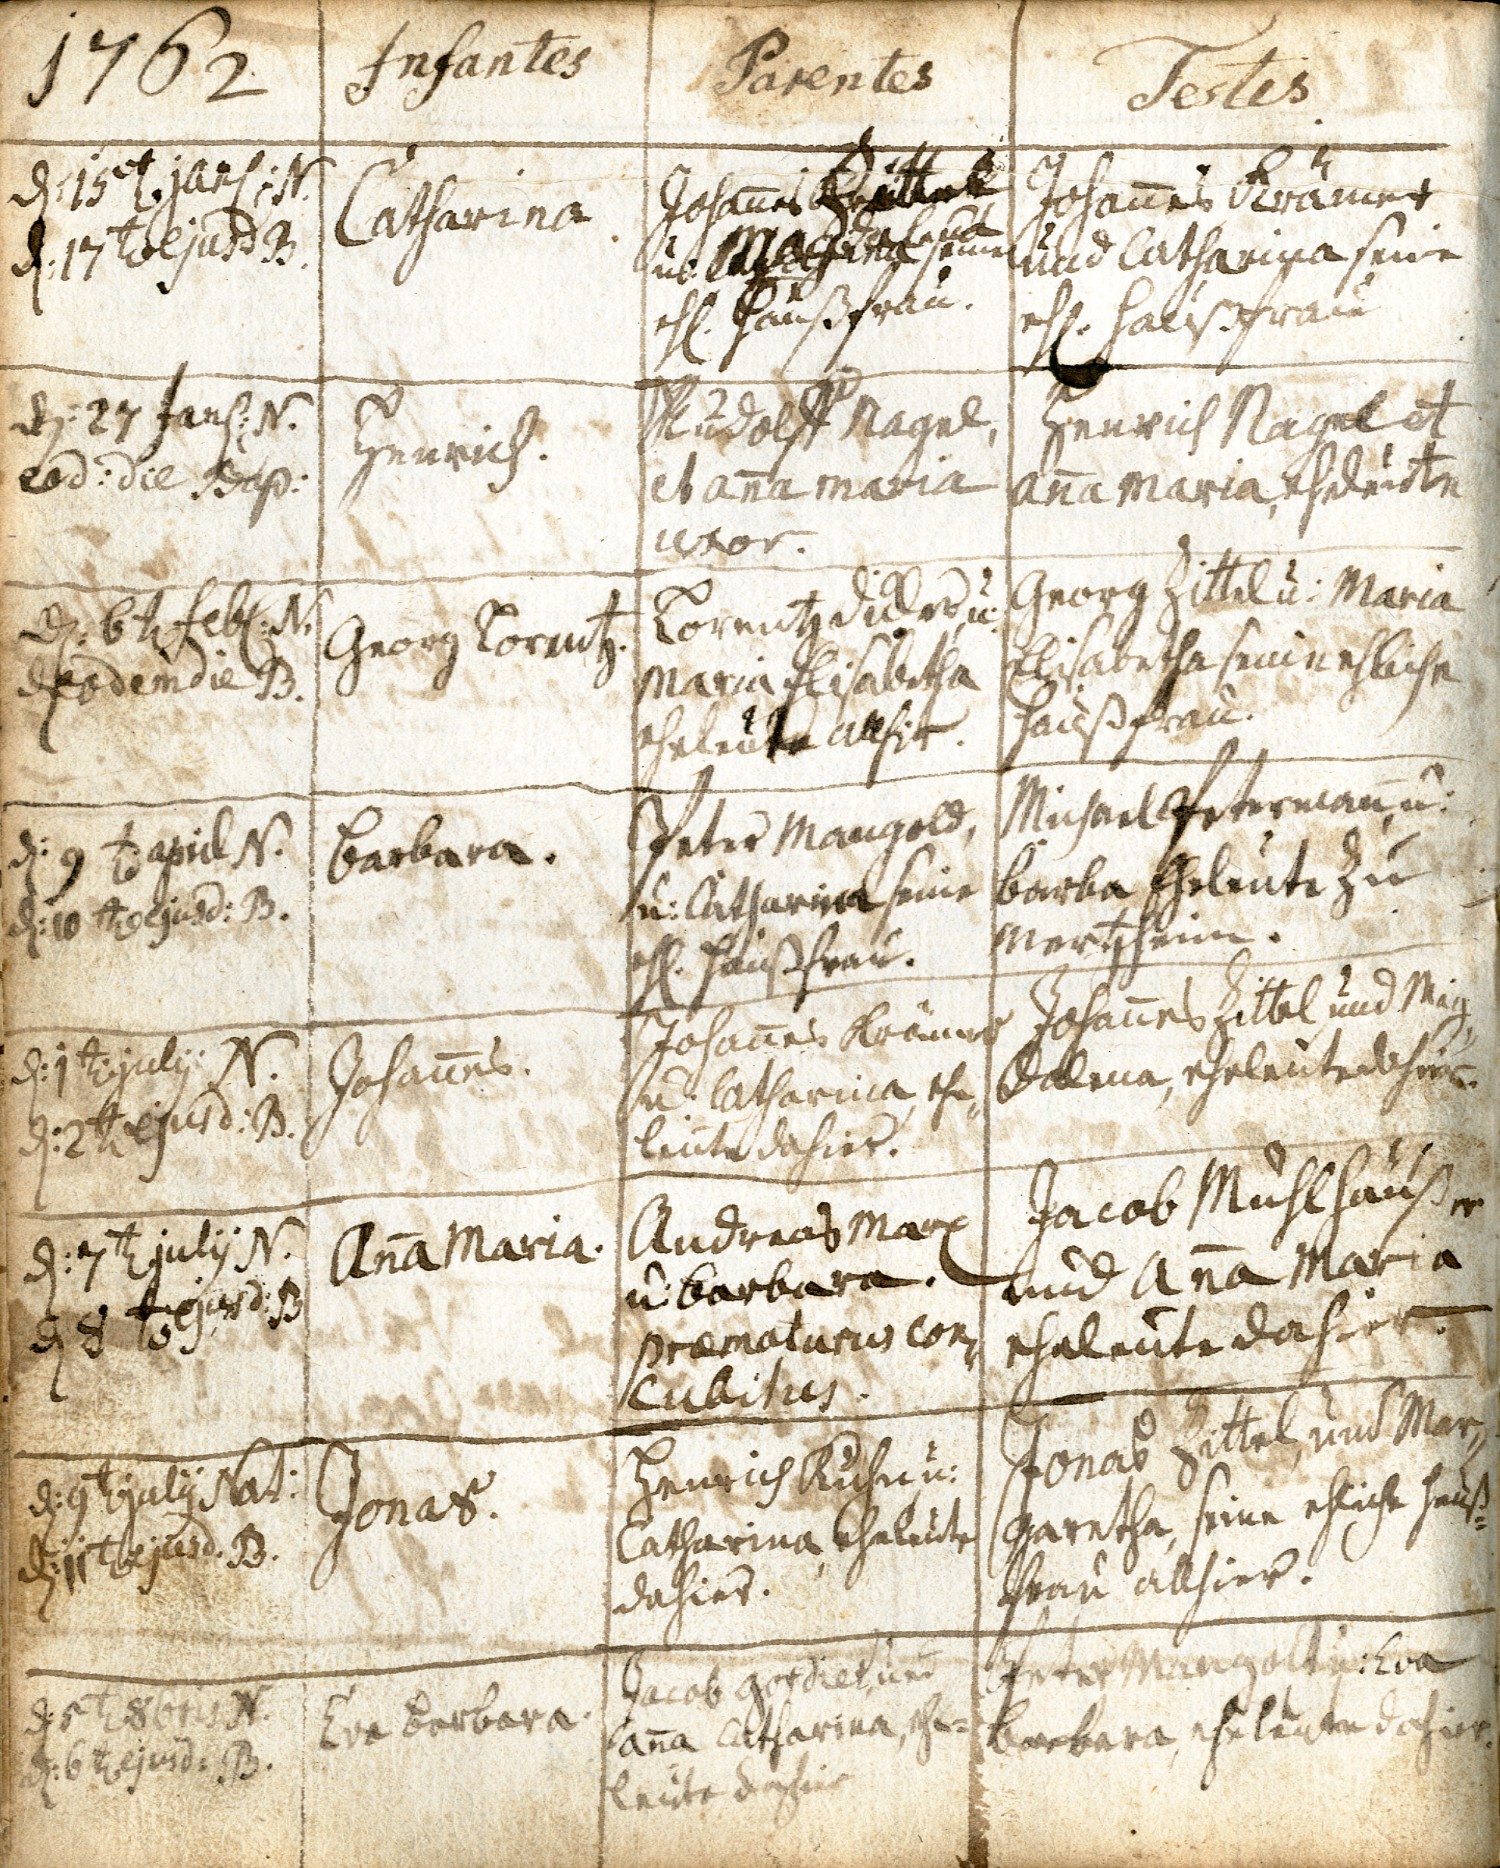 1762
Infantes
Parentes
Testes
d: 15t Jan: N.
d: 17t ejusd B.
Catharina
Johannes Zittel
u. Magdalena seine
ehl. haußfrau.
Johannes Krämer
und Catharina seine
ehl. haußfrau
d: 27 Jan: N.
eod: die Bap:
Henrich.
Rudolff Nagel,
et anna maria
uxor.
Henrich Nagel et
anna maria, eheleute
d: 6t feb: N.
d eodem die B.
Georg Lorentz.
Lorentz u:
Maria Elisabetha
eheleute allhir.
Georg Zittel u: Maria
Elisabetha seine ehliche
haußfrau.
d: 9t april N.
d: 10t ejusd: B.
barbara.
Peter Mangold,
u: Catharina seine
ehl. haußfrau.
Michael Petermann, u:
barba Eheleute zu
Mertzheim.
d: 1t july N.
d: 2t ejusd: B.
Johannes.
Johannes Krämer
u: Catharina, ehe„
leute dahier.
Johannes Zittel und Mag„
dalena, eheleute dahier.
d: 7t july N.
d 8t ejusd: B
Anna Maria.
Andreas Marx
u: barbara.
præmaturus con„
cubitus.
Jacob Mühlhäußer
und Anna Maria
eheleute dahier.
d: 9t july Nat:
d: 11t ejusd. B.
Jonas.
Henrich Kuhn u:
Catharina, eheleute
dahier.
Jonas Zittel, und Mar„
garetha, seine ehliche hauß=
frau allhier.
d: 5t 8bris N.
d: 6t ejusd: B.
Eva barbara.
Jacob und
anna Catharina, ehe=
leute dahier
Peter Mangolt u: Eva
barbara, eheleute dahier.